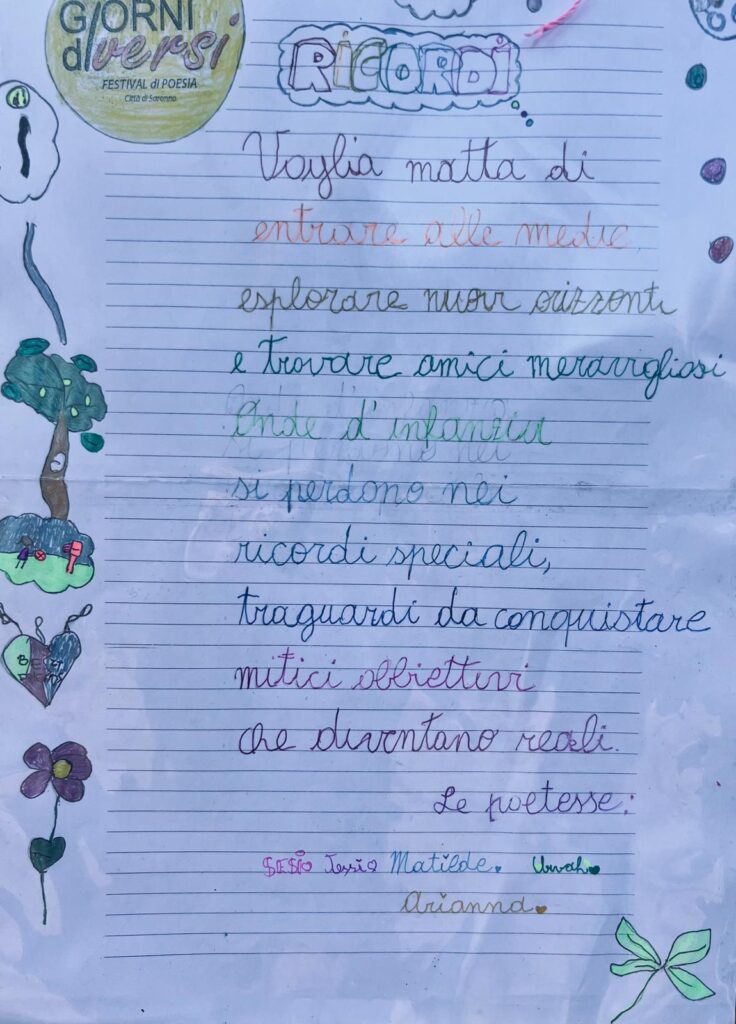 GIORNI
diversi
FESTIVAL di POESIA
Città di Saronno
RICORDI
Voglia matta di
entrare alle medie,
esplorare nuovi orizzonti
e trovare amici meravigliosi
Onde d'infanzia
si perdono nei
ricordi speciali,
traguardi da conquistare
mitici obbiettivi
che diventano reali.
Le poetesse:
Jessi Matilde. Urwah
Arianna
BEST